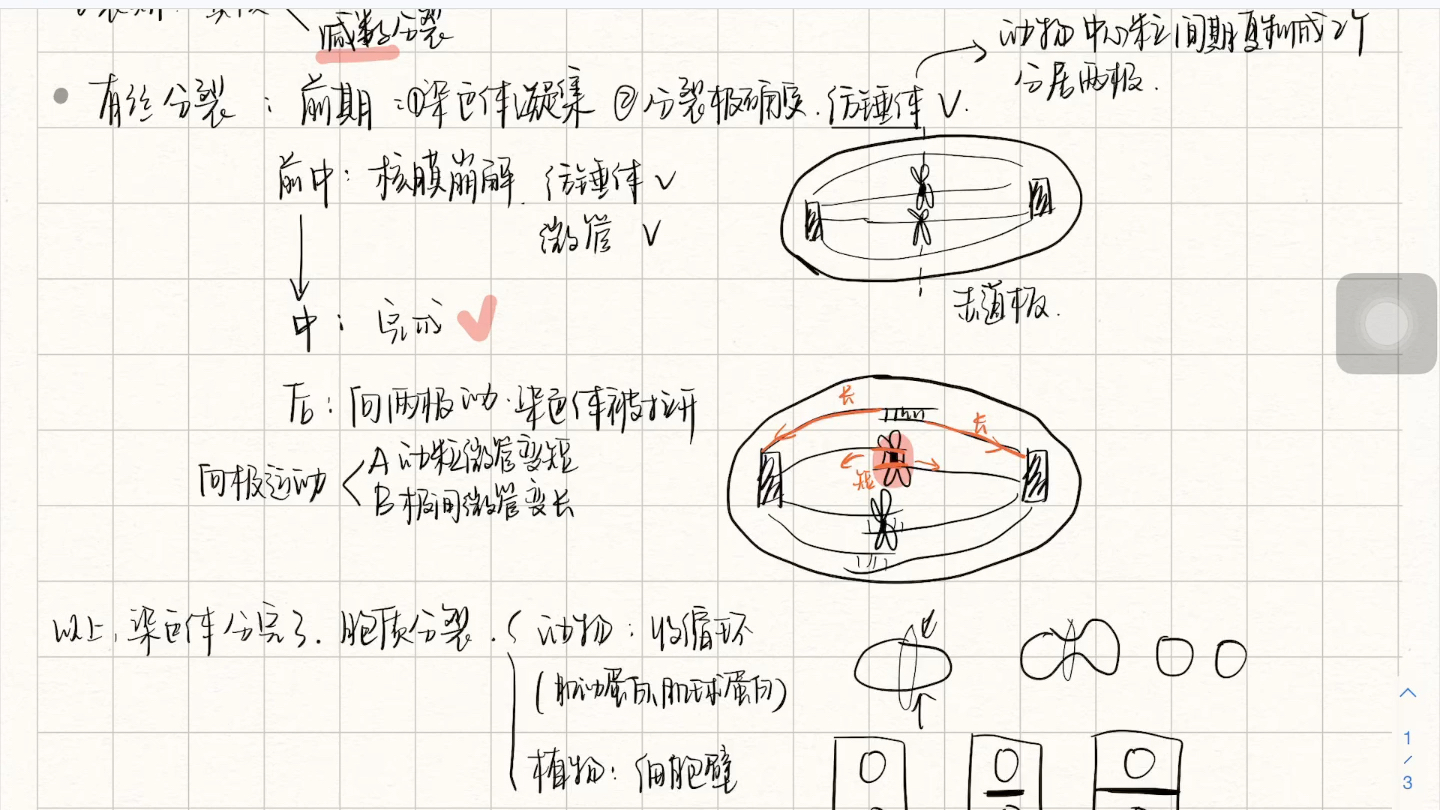 减数分裂
动物中心粒间期复制成2个
分居两极.
有丝分裂：前期：①染色体凝集 ②分裂极确定.纺锤体√.
前中：核膜崩解. 纺锤体√
微管 √
赤道板.
中：完成
后：向两极动.染色体被拉开
向极运动
A 动粒微管变短
B 极间微管变长
长
长
短
以上,染色体分完了. 胞质分裂.
动物：收缩环
(肌动蛋白、肌球蛋白)
植物：细胞壁
1
/
3